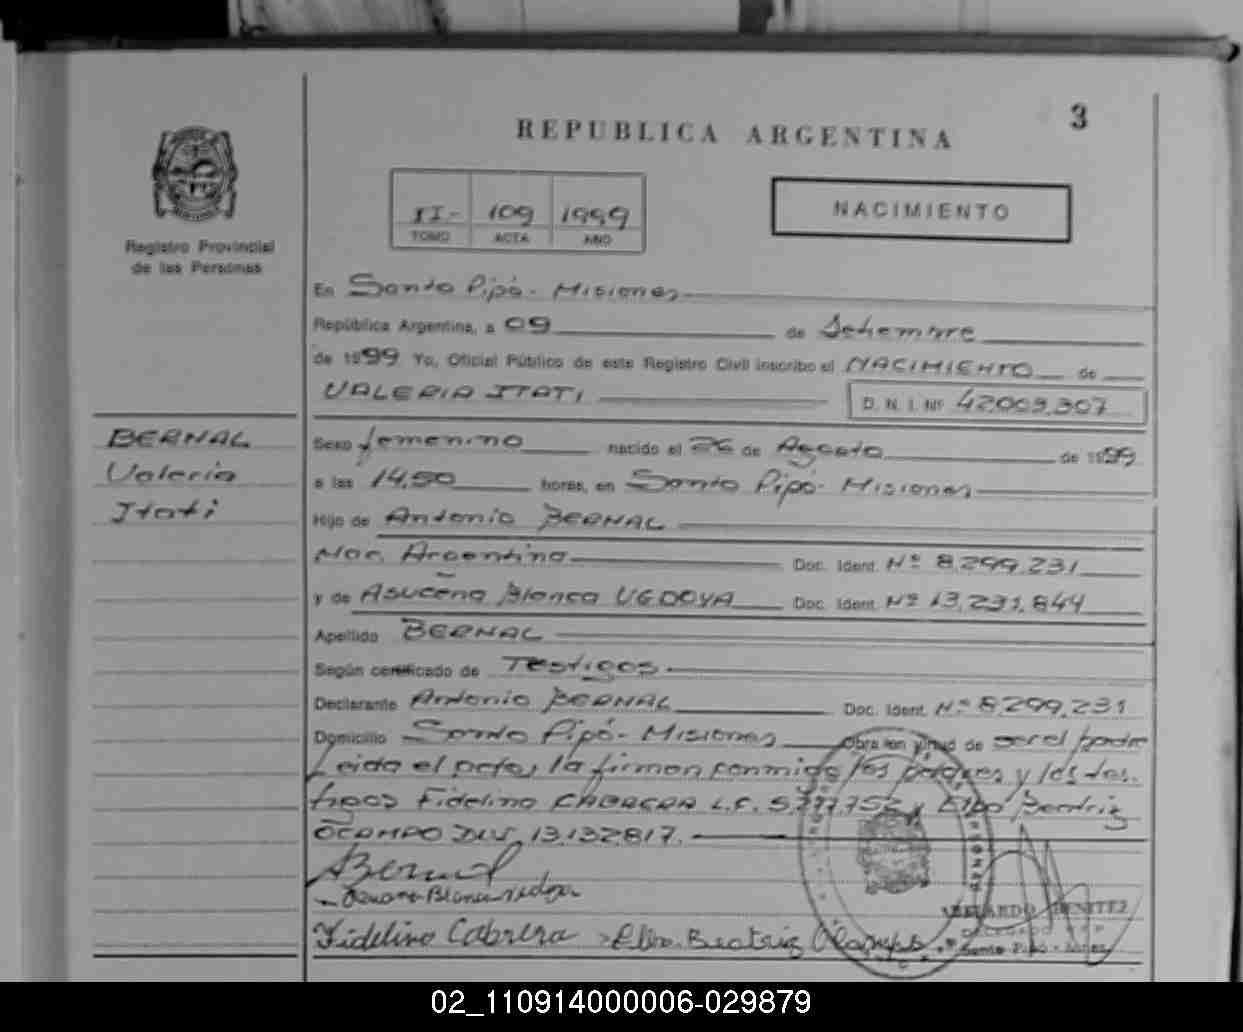 3
REPUBLICA ARGENTINA
II- 109 1999
TOMO ACTA AÑO
NACIMIENTO
Registro Provincial
de las Personas
En Santo Pipó - Misiones
República Argentina, a 09 de Setiembre
de 1999 Yo, Oficial Público de este Registro Civil inscribo el NACIMIENTO de
VALERIA ITATI
D. N. I. Nº 42.009.307
BERNAL
Valeria
Itati
Sexo femenino nacido el 26 de Agosto de 1999
a las 14,50 horas, en Santo Pipó - Misiones
Hijo de Antonio BERNAL
Nac. Argentina Doc. Ident. Nº 8.299.231
y de Asuceña Blanca UGDOYA Doc. Ident. Nº 13.231.844
Apellido BERNAL
Según certificado de Testigos.
Declarante Antonio BERNAL Doc. Ident. Nº 8.299.231
Domicilio Santo Pipó - Misiones Obra en virtud de ser el padre
Leida el acta, la firman conmigo los padres y los tes.
tigos Fidelino CABRERA L.E. Elba Beatriz
OCAMPO DNI, 13.132817.
Bernal
Blanca
Fidelino Cabrera Elba Beatriz Ocampo
ABELARDO BENITEZ
DELEGADO
Santo Pipó - Mnes.
02_110914000006-029879